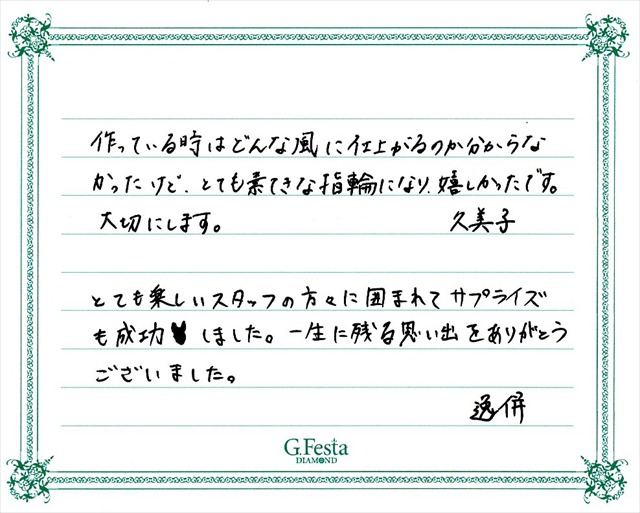 作っている時はどんな風に仕上がるのか分からな
かったけど、とても素てきな指輪になり、嬉しかったです。
大切にします。 久美子
とても楽しいスタッフの方々に囲まれてサプライズ
も成功しました。一生に残る思い出をありがとう
ございました。
逸併
G.Festa
DIAMOND